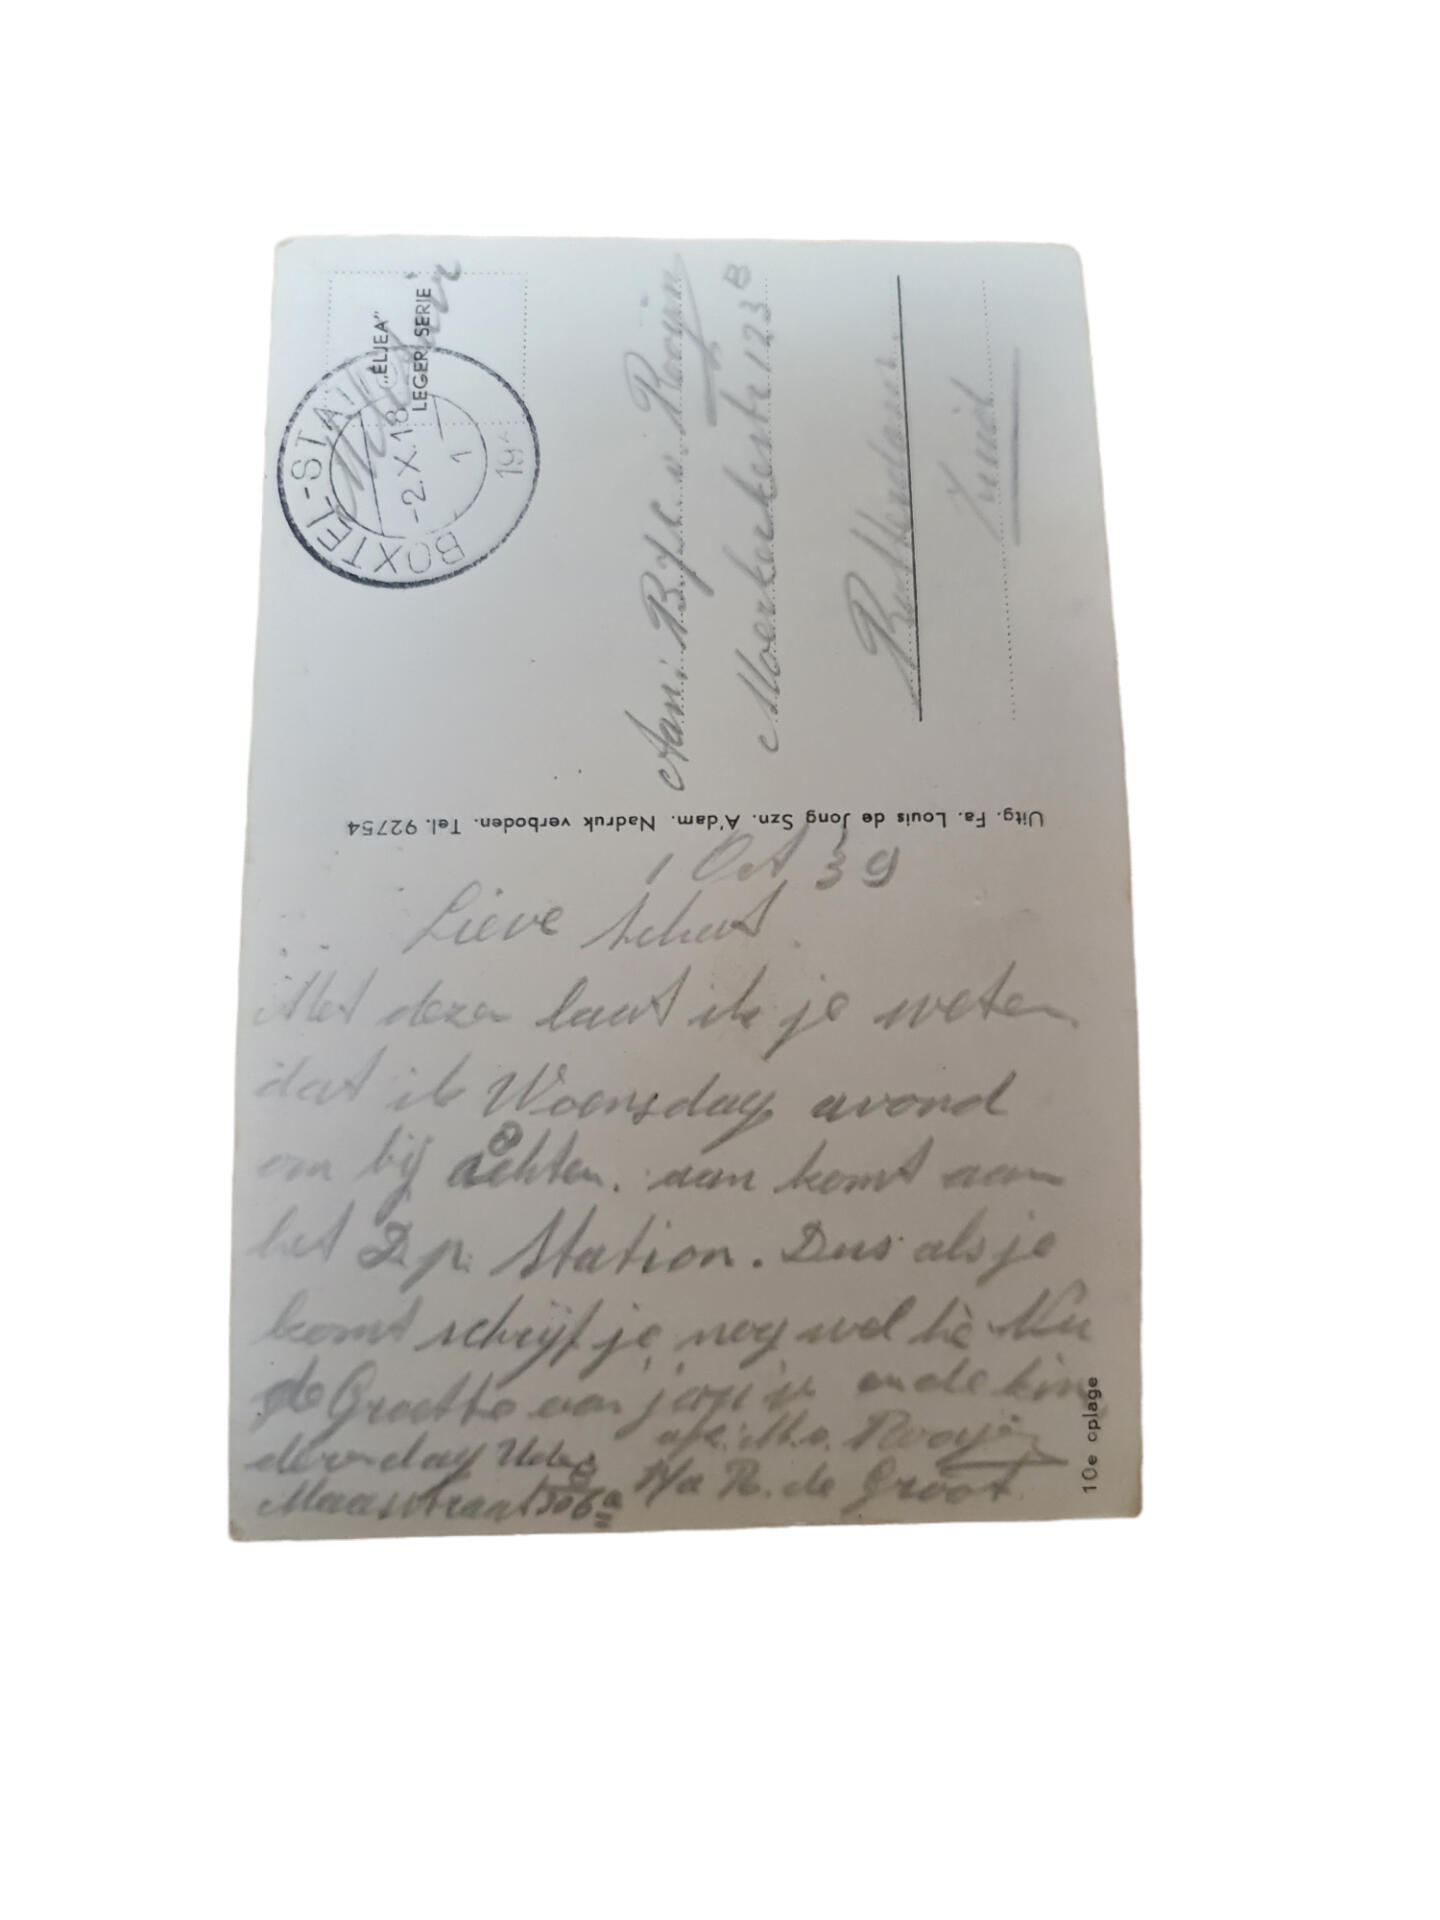 „ELJEA"
LEGER SERIE
BOXTEL-STATION
-2.X.18
1
19
Aan: B.j.c. v. Rooijen
Moerkerkestr 123 B
Rotterdam.
Zuid
Uitg. Fa. Louis de Jong Szn. A'dam. Nadruk verboden. Tel. 92754
1 Oct 39
Lieve schat
Met dezen laat ik je weten
dat ik Woensdag avond
om bij achten. aan komt aan
het D.p. Station. Dus als je
komt schrijf je nog wel hè Nu
de Groette van jou en de kin
deren dag
v. Rooijen
Maasstraat 306a p/a R. de Groot
10e oplage